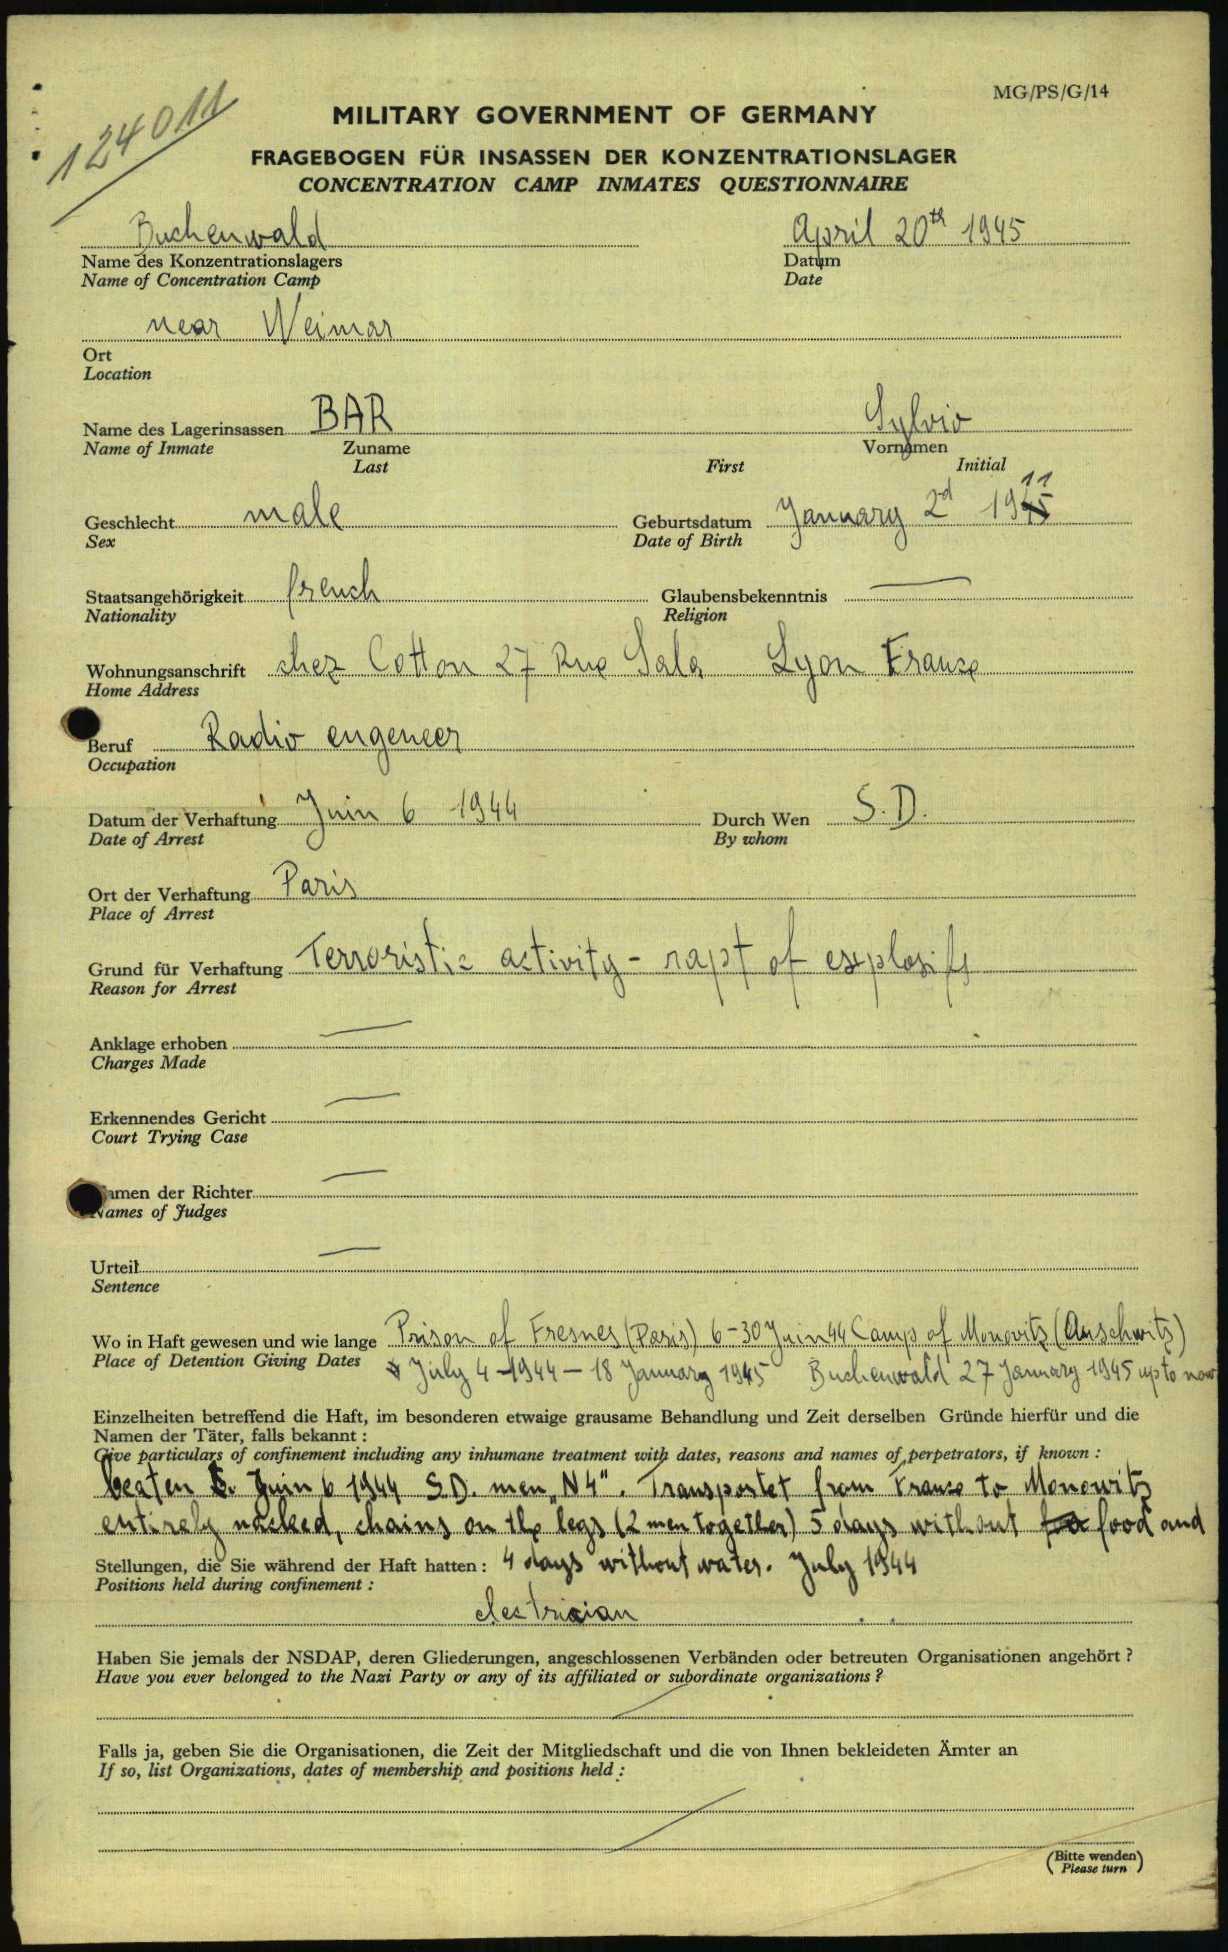 MG/PS/G/14
124011
MILITARY GOVERNMENT OF GERMANY
FRAGEBOGEN FÜR INSASSEN DER KONZENTRATIONSLAGER
CONCENTRATION CAMP INMATES QUESTIONNAIRE
Buchenwald April 20th 1945
Name des Konzentrationslagers Datum
Name of Concentration Camp Date
near Weimar
Ort
Location
Name des Lagerinsassen BAR Sylvio
Name of Inmate Zuname Vornamen
Last First Initial
Geschlecht male Geburtsdatum January 2d 1911
Sex Date of Birth
Staatsangehörigkeit french Glaubensbekenntnis —
Nationality Religion
Wohnungsanschrift chez Cotton 27 Rue Sala Lyon France
Home Address
Beruf Radio engeneer
Occupation
Datum der Verhaftung Juin 6 1944 Durch Wen S.D.
Date of Arrest By whom
Ort der Verhaftung Paris
Place of Arrest
Grund für Verhaftung Terroristic activity - rapt of explosifs
Reason for Arrest
Anklage erhoben —
Charges Made
Erkennendes Gericht —
Court Trying Case
Namen der Richter —
Names of Judges
Urteil —
Sentence
Wo in Haft gewesen und wie lange Prison of Fresnes (Paris) 6-30 Juin 44 Camp of Monovitz (Auschwitz)
Place of Detention Giving Dates July 4 1944 - 18 January 1945 Buchenwald 27 January 1945 up to now
Einzelheiten betreffend die Haft, im besonderen etwaige grausame Behandlung und Zeit derselben Gründe hierfür und die
Namen der Täter, falls bekannt :
Give particulars of confinement including any inhumane treatment with dates, reasons and names of perpetrators, if known :
beaten Juin 6 1944 S.D. men „N4“. Transportet from France to Monowitz
entirely nacked, chains on the legs (2 men together) 5 days without food and
Stellungen, die Sie während der Haft hatten : 4 days without water. July 1944
Positions held during confinement :
electrician
Haben Sie jemals der NSDAP, deren Gliederungen, angeschlossenen Verbänden oder betreuten Organisationen angehört ?
Have you ever belonged to the Nazi Party or any of its affiliated or subordinate organizations ?
Falls ja, geben Sie die Organisationen, die Zeit der Mitgliedschaft und die von Ihnen bekleideten Ämter an
If so, list Organizations, dates of membership and positions held :
(Bitte wenden)
Please turn